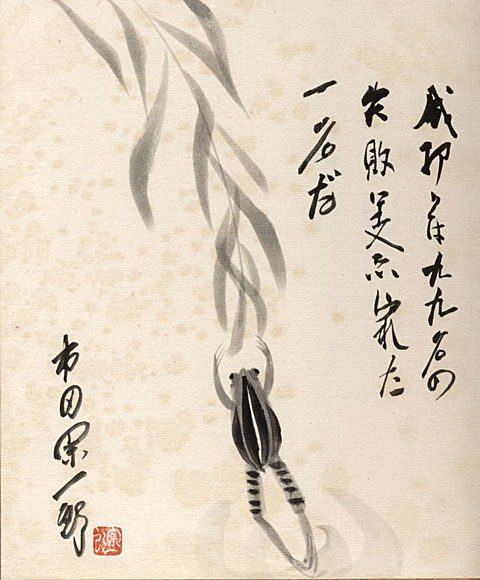 成功は九九%の
失敗に支えられた
一%だ
本田宗一郎